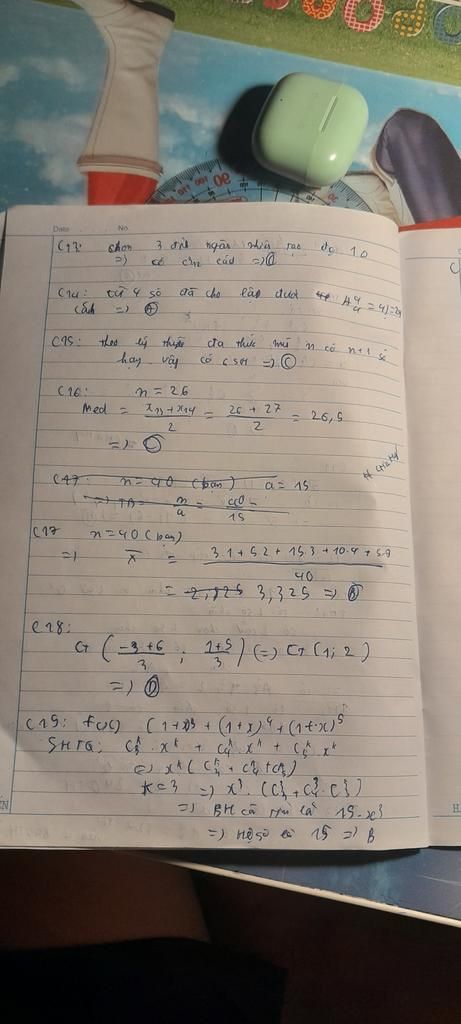 Date No.
C13: chọn 3 đỉnh ngẫu nhiên tạo 10
=) có cách =) C
C14: từ 4 số đã cho lập được A⁴₄ = 4! = 24
cách =) A
C15: theo lý thuyết đa thức mũ n có n+1 số
hạng vậy có 6 SH =) C
C16: n = 26
Med = (x13 + x14)/2 = (26 + 27)/2 = 26,5
=) C
C17: n = 40 (bạn) a = 15
=) TB = n/a = 40/15
C17 n = 40 (bạn)
=) x̄ = (3.1 + 5.2 + 15.3 + 10.4 + 5.7)/40
= 2,825 3,325 =) B
C18:
G ((-3+6)/3 ; (1+5)/3) (=) G (1; 2)
=) D
C19: f(x) (1+x)³ + (1+x)⁴ + (1+x)⁵
SHTQ: Cᵏ₃ . xᵏ + Cᵏ₄ . xᵏ + Cᵏ₅ . xᵏ
=) xᵏ (Cᵏ₃ + Cᵏ₄ + Cᵏ₅)
K = 3 =) x³ . (C³₃ + C³₄ . C³₅)
=) là 15 . x³
=) Hệ số là 15 =) B